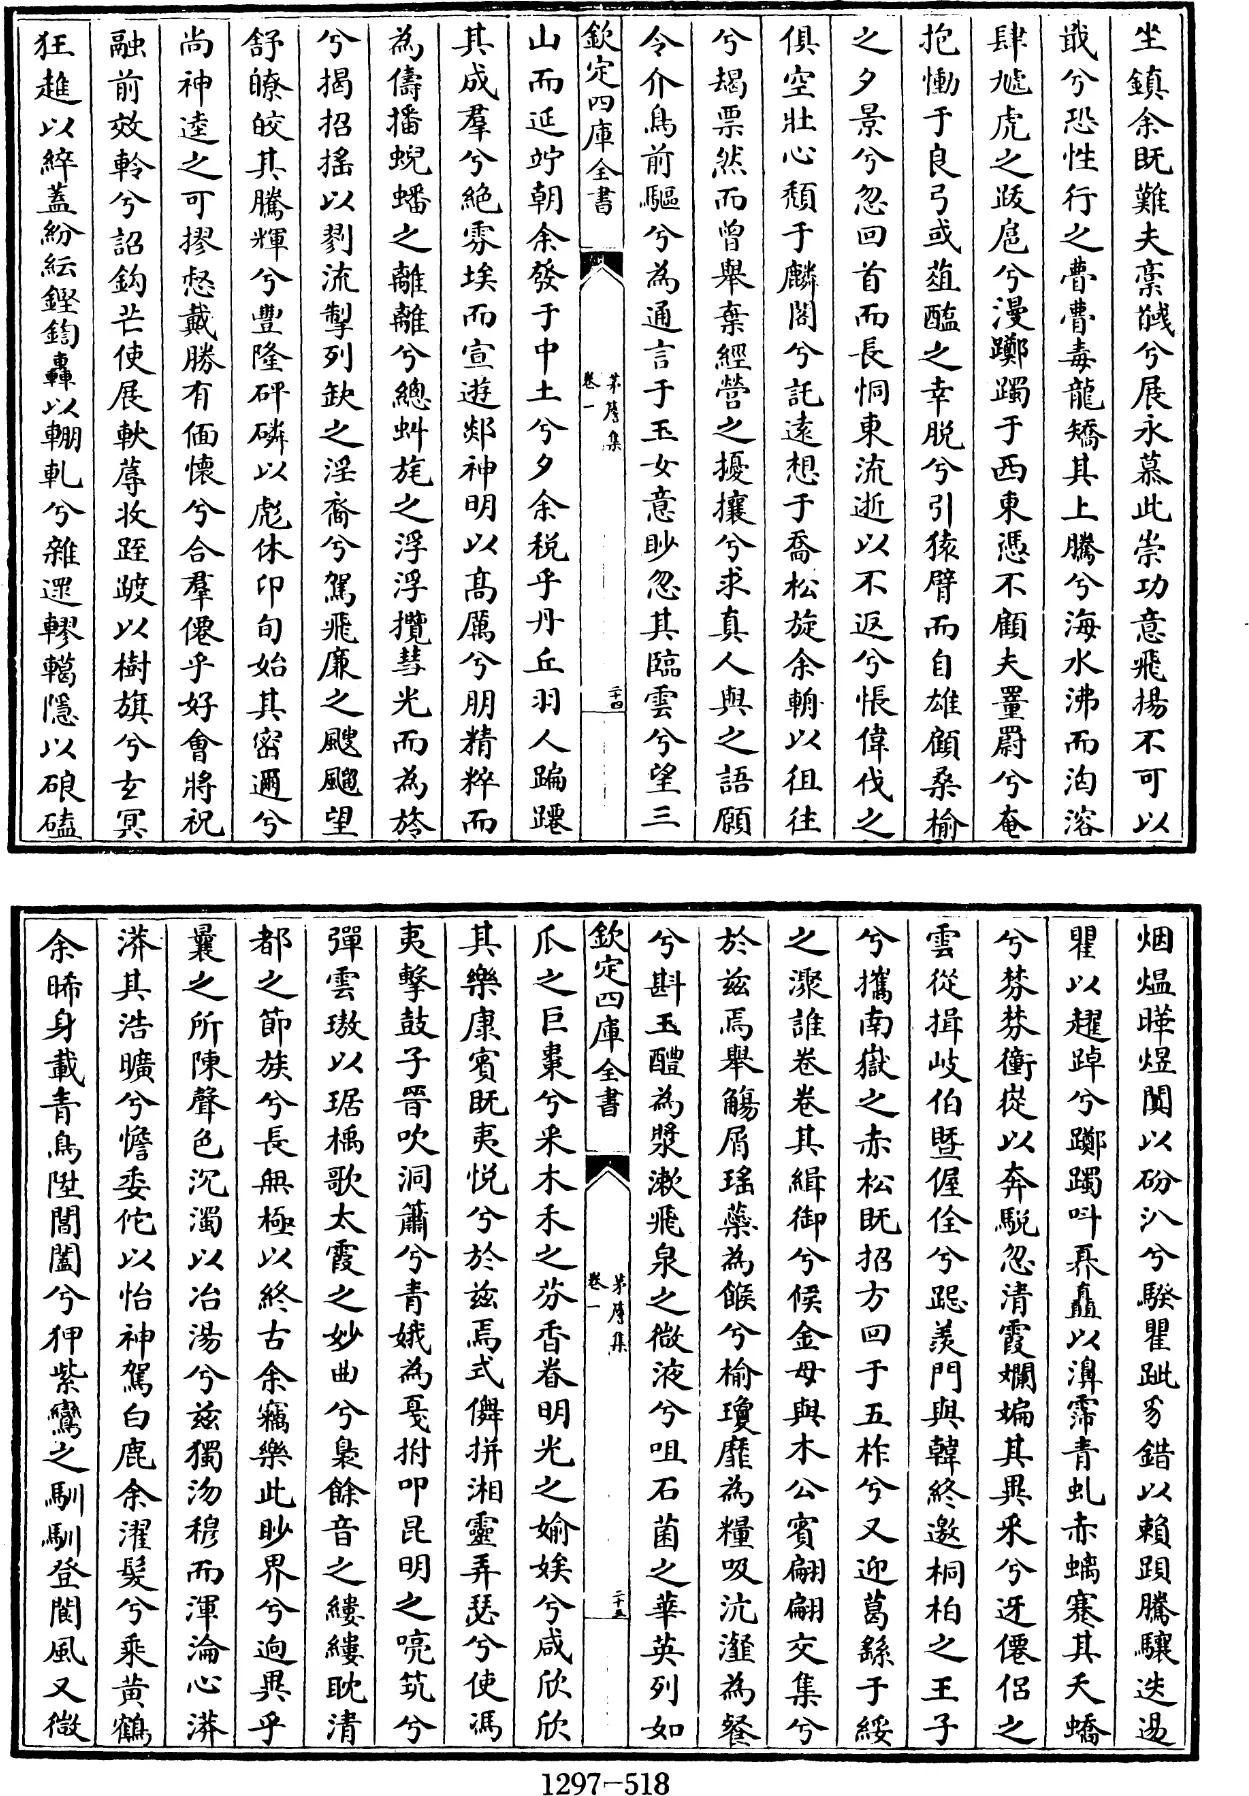 坐鎮余既難夫稟餞兮展永慕此崇功意飛揚不可以
戢兮恐性行之瞢瞢毒龍矯其上騰兮海水沸而滃溶
肆虓虎之跋扈兮漫躑躅于西東憑不顧夫罿罻兮奄
抱慟于良弓或葅醢之幸脱兮引猿臂而自雄顧桑榆
之夕景兮忽回首而長恫東流逝以不返兮悵偉伐之
俱空壯心頽于麟閣兮託遠想于喬松旋余輈以徂往
兮朅票然而曾舉棄經營之擾攘兮求真人與之語願
令介鳥前驅兮為通言于玉女意眇忽其臨雲兮望三
欽定四庫全書
茅簷集
卷一
二十四
山而延竚朝余發于中土兮夕余税乎丹丘羽人蹁躚
其成羣兮絶雰埃而宣遊郯神明以高厲兮朋精粹而
為儔播蜺蟠之離離兮總虯旄之浮浮攬彗光而為旍
兮揭招摇以剹流掣列缺之淫裔兮駕飛廉之颼飀望
舒皦皎其騰輝兮豐隆砰磷以彪休卬旬始其密邇兮
尚神逵之可摎惄戴勝有偭懷兮合羣僊乎好會將祝
融前效軨兮詔鈎芒使展軑蓐收跮踱以樹旗兮玄冥
狂趡以綷蓋紛紜鏗鍧轟以輣軋兮雜遝轇轕隱以硠磕
烟煴曄煜闐以砏汃兮騤瞿跐豸錯以賴跟騰驤迭逿
瞿以趯踔兮躑躅呌奡矗以濞霈青虬赤螭蹇其夭蟜
兮棼棼衝從以奔駾忽清霞斕斒其異采兮迓僊侣之
雲從揖岐伯暨偓佺兮跽羨門與韓終邀桐柏之王子
兮攜南嶽之赤松既招方回于五柞兮又迎葛繇于綏
之㵵誰卷卷其緝御兮候金母與木公賓翩翩交集兮
於兹焉舉觴屑瑤蘂為餱兮榆瓊靡為糧吸沆瀣為餐
兮斟玉醴為漿漱飛泉之微液兮咀石菌之華英列如
欽定四庫全書
茅簷集
卷一
二十五
瓜之巨棗兮采木禾之芬香眷明光之婾娭兮咸欣欣
其樂康賓既夷悦兮於兹焉式儛拼湘靈弄瑟兮使馮
夷擊鼓子晉吹洞簫兮青娥為戛拊叩昆明之喨筑兮
彈雲璈以琚楀歌太霞之妙曲兮裊餘音之縷縷耽清
都之節族兮長無極以終古余竊樂此眇界兮逈異乎
曩之所陳聲色沉濁以冶湯兮兹獨沕穆而渾淪心漭
漭其浩曠兮憺委佗以怡神駕白鹿余濯髮兮乘黄鶴
余晞身載青鳥陞閶闔兮狎紫鸞之馴馴登閬風又微
1297-518